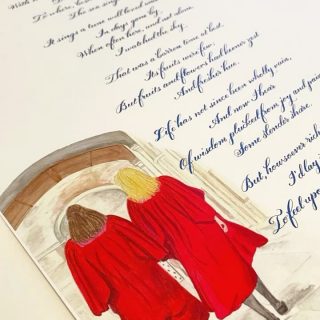 With
To where, below
The sea sing
It sings a tune well loved
In days gone by,
When often here, and not alone,
I watched the sky.
That was a barren time at best,
Its fruits were few;
But fruits and flowers had keener zest
And fresher hue.
Life has not since been wholly vain,
And now I bear
Of wisdom plucked from joy and pain
Some slender share.
But, howsoever rich
I'd lay
To feel upo